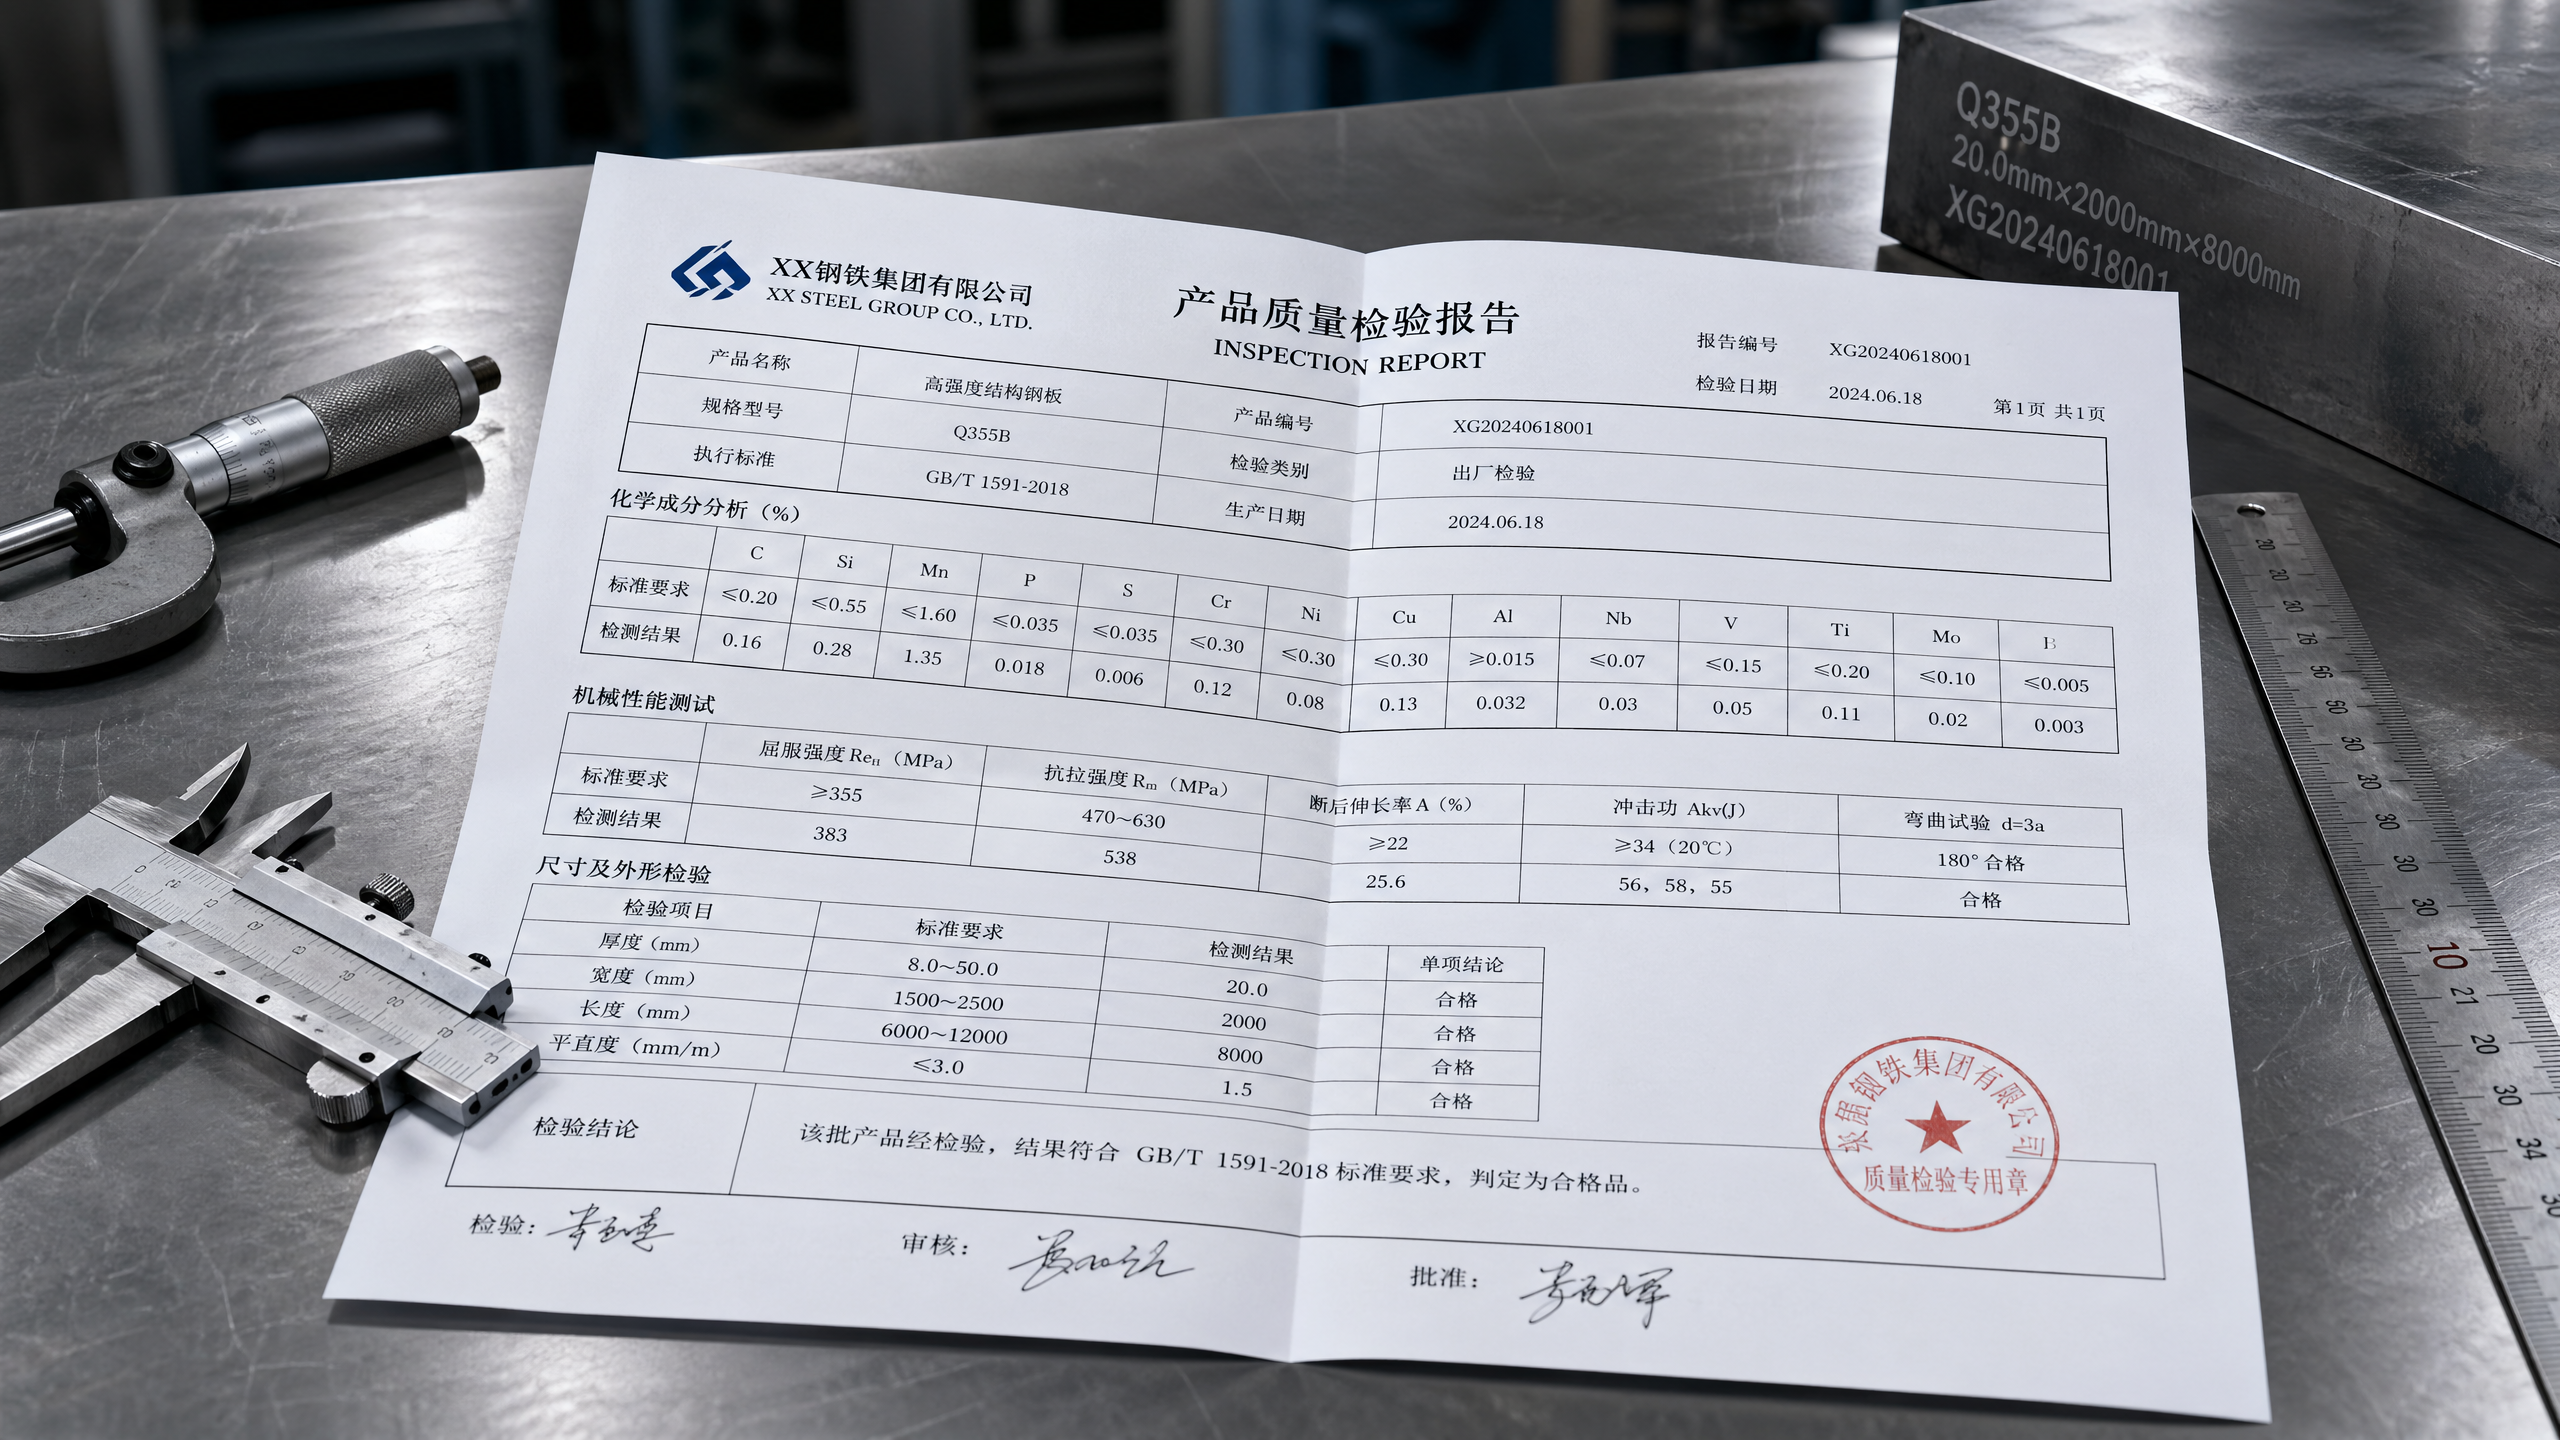 Q355B
20.0mm×2000mm×8000mm
XG20240618001
XX钢铁集团有限公司
XX STEEL GROUP CO., LTD.
产品质量检验报告
INSPECTION REPORT
报告编号 XG20240618001
检验日期 2024.06.18 第1页 共1页
产品名称 高强度结构钢板 产品编号 XG20240618001
规格型号 Q355B 检验类别 出厂检验
执行标准 GB/T 1591-2018 生产日期 2024.06.18
化学成分分析（%）
C Si Mn P S Cr Ni Cu Al Nb V Ti Mo B
标准要求 ≤0.20 ≤0.55 ≤1.60 ≤0.035 ≤0.035 ≤0.30 ≤0.30 ≤0.30 ≥0.015 ≤0.07 ≤0.15 ≤0.20 ≤0.10 ≤0.005
检测结果 0.16 0.28 1.35 0.018 0.006 0.12 0.08 0.13 0.032 0.03 0.05 0.11 0.02 0.003
机械性能测试
屈服强度 ReH（MPa） 抗拉强度 Rm（MPa） 断后伸长率 A（%） 冲击功 Akv(J) 弯曲试验 d=3a
标准要求 ≥355 470~630 ≥22 ≥34（20℃） 180° 合格
检测结果 383 538 25.6 56，58，55 合格
尺寸及外形检验
检验项目 标准要求 检测结果 单项结论
厚度（mm） 8.0~50.0 20.0 合格
宽度（mm） 1500~2500 2000 合格
长度（mm） 6000~12000 8000 合格
平直度（mm/m） ≤3.0 1.5 合格
检验结论 该批产品经检验，结果符合 GB/T 1591-2018 标准要求，判定为合格品。
钢铁集团有限公司
质量检验专用章
检验：
审核：
批准：